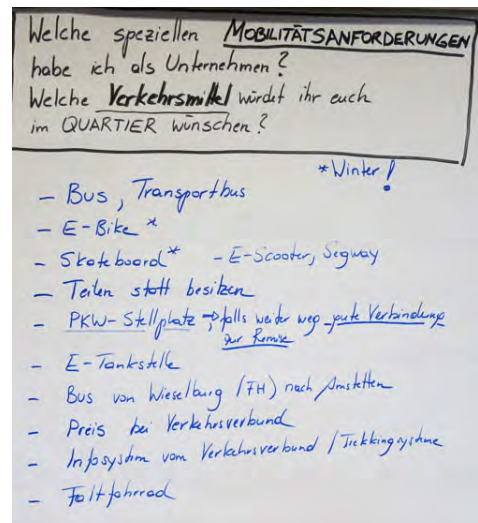 Welche speziellen MOBILITÄTSANFORDERUNGEN
habe ich als Unternehmen?
Welche Verkehrsmittel würdet ihr euch
im QUARTIER wünschen?
*Winter!
- Bus, Transportbus
- E-Bike *
- Skateboard* - E-Scooter, Segway
- Teilen statt besitzen
- PKW-Stellplatz → falls weiter weg gute Verbindung
zur Remise
- E-Tankstelle
- Bus von Wieselburg (FH) nach Amstetten
- Preis bei Verkehrsverbund
- Infosystem vom Verkehrsverbund / Trekkingsysteme
- Faltfahrrad